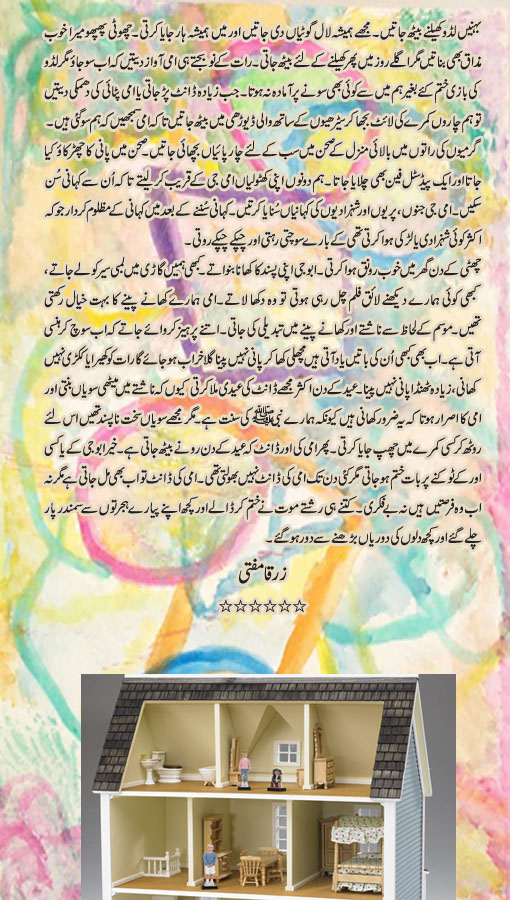 بہنیں لڈو کھیلنے بیٹھ جاتیں۔ مجھے ہمیشہ لال گوٹیاں دی جاتیں اور میں ہمیشہ ہار جایا کرتی۔ چھوٹی پھپھو میرا خوب
مذاق بھی بناتیں مگر اگلے روز میں پھر کھیلنے کے لئے بیٹھ جاتی۔ رات کے نو بجتے ہی امی آواز دیتیں کہ اب سو جاؤ مگر لڈو
کی بازی ختم کئے بغیر ہم میں سے کوئی بھی سونے پر آمادہ نہ ہوتا۔ جب زیادہ ڈانٹ پڑ جاتی یا امی پٹائی کی دھمکی دیتیں
تو ہم چاروں کمرے کی لائٹ بجھا کر سیڑھیوں کے ساتھ والی ڈیوڑھی میں بیٹھ جاتیں تاکہ امی سمجھیں کہ ہم سو گئی ہیں۔
گرمیوں کی راتوں میں بالائی منزل کے صحن میں سب کے لئے چارپائیاں بچھائی جاتیں۔ صحن میں پانی کا چھڑکاؤ کیا
جاتا اور ایک پیڈسٹل فین بھی چلایا جاتا۔ ہم دونوں اپنی کھٹولیاں امی جی کے قریب کر لیتے تاکہ اُن سے کہانی سُن
سکیں۔ امی جی جنوں، پریوں اور شہزادیوں کی کہانیاں سُنایا کرتیں۔ کہانی سُننے کے بعد میں کہانی کے مظلوم کردار جو کہ
اکثر کوئی شہزادی یا لڑکی ہوا کرتی تھی کے بارے سوچتی رہتی اور چپکے چپکے روتی۔
چھٹی کے دن گھر میں خوب رونق ہوا کرتی۔ ابو جی اپنی پسند کا کھانا بنواتے۔ کبھی ہمیں گاڑی میں لمبی سیر کو لے جاتے،
کبھی کوئی ہمارے دیکھنے لائق فلم چل رہی ہوتی تو وہ دکھا لاتے۔ امی ہمارے کھانے پینے کا بہت خیال رکھتی
تھیں۔ موسم کے لحاظ سے ناشتے اور کھانے پینے میں تبدیلی کی جاتی۔ اتنے پرہیز کروائے جاتے کہ اب سوچ کر ہنسی
آتی ہے۔ اب بھی کبھی اُن کی باتیں یاد آتی ہیں مچھلی کھا کر پانی نہیں پینا گلا خراب ہو جائے گا رات کو کھیرا یا ککڑی نہیں
کھانی، زیادہ ٹھنڈا پانی نہیں پینا۔ عید کے دن اکثر مجھے ڈانٹ کی عیدی ملا کرتی کیوں کہ ناشتے میں میٹھی سویاں بنتی اور
امی کا اصرار ہوتا کہ یہ ضرور کھانی ہیں کیونکہ ہمارے نبی ﷺ کی سنت ہے۔ مگر مجھے سویاں سخت ناپسند تھیں اس لئے
روٹھ کر کسی کمرے میں چھپ جایا کرتی۔ پھر امی کی اور ڈانٹ کہ عید کے دن رونے بیٹھ جاتی ہے۔ خیر ابو جی کے یا کسی
اور کے ٹوکنے پر بات ختم ہو جاتی مگر کئی دن تک امی کی ڈانٹ نہیں بھولتی تھی۔ امی کی ڈانٹ تو اب بھی مل جاتی ہے مگر نہ
اب وہ فرصتیں ہیں نہ بے فکری۔ کتنے ہی رشتے موت نے ختم کر ڈالے اور کچھ اپنے پیارے ہجرتوں سے سمندر پار
چلے گئے اور کچھ دلوں کی دوریاں بڑھنے سے دور ہو گئے۔
زرقا مفتی
☆☆☆☆☆☆